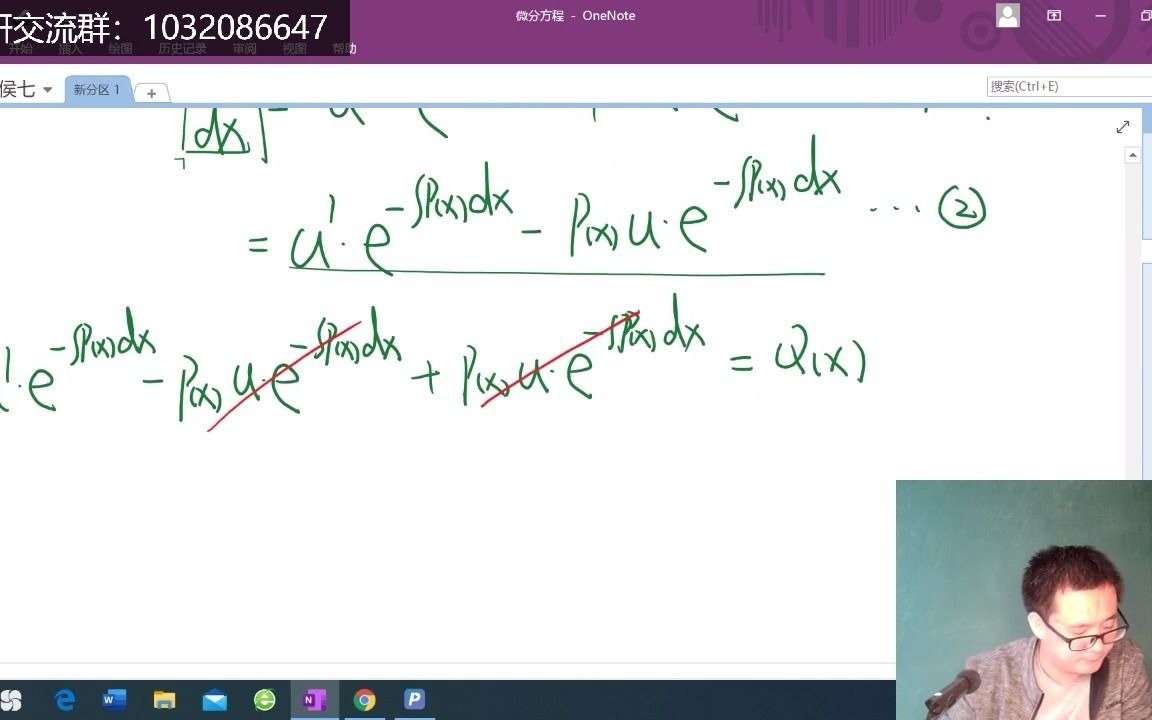 研交流群：1032086647
微分方程 - OneNote
开始 插入 绘图 历史记录 审阅 视图 帮助
侯七
新分区 1
搜索(Ctrl+E)
dx
= u'·e^{-∫P(x)dx} - P(x)u·e^{-∫P(x)dx} ... ②
'·e^{-∫P(x)dx} - P(x)u·e^{-∫P(x)dx} + P(x)u·e^{-∫P(x)dx} = Q(x)